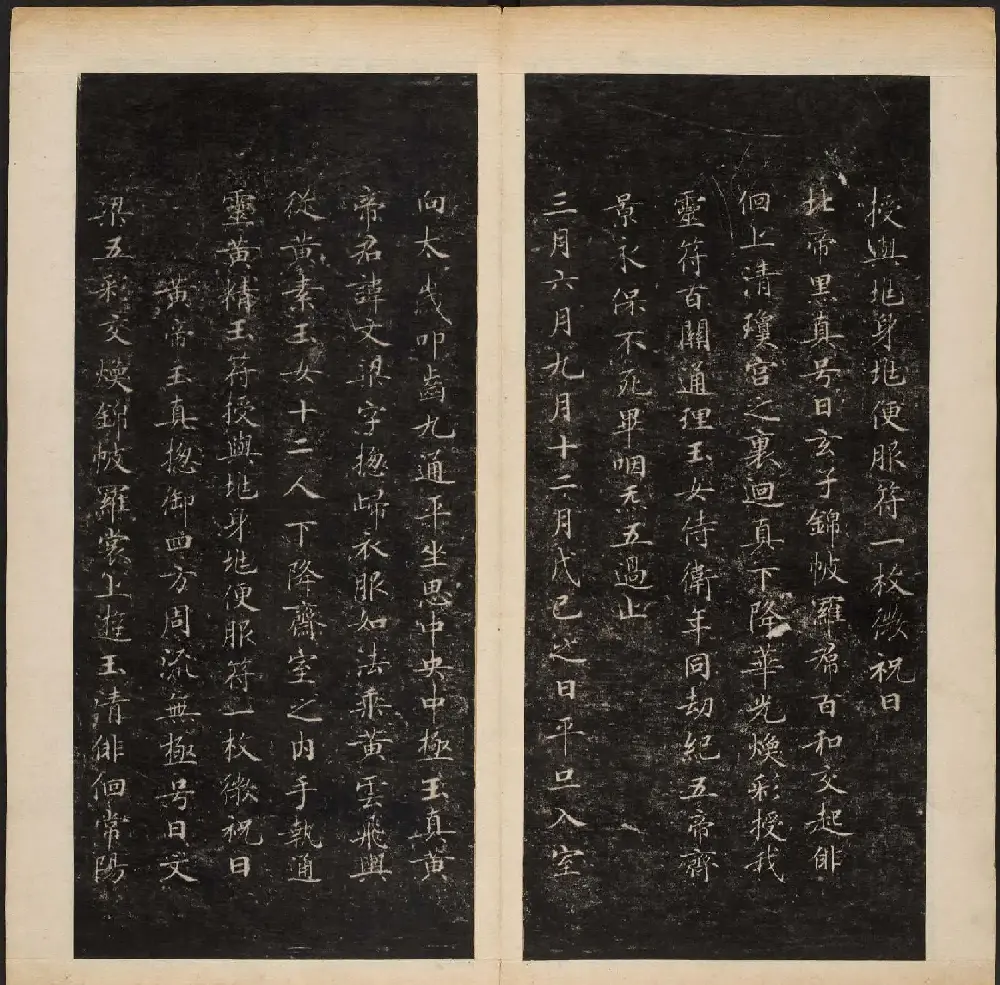 授與兆身兆便服符一枚微祝曰
北帝黒真号曰玄子錦帔羅帬百和交起俳
佪上清瓊宫之裏迴真下降華光煥彩授我
靈符百關通理玉女侍衛年同劫紀五帝齊
景永保不死畢咽炁五過止
三月六月九月十二月戊己之日平旦入室
向太歲叩齒九通平坐思中央中極玉真黄
帝君諱文梁字揔歸衣服如法乘黄雲飛輿
從黄素玉女十二人下降齋室之内手執通
靈黄精玉符授與兆身兆便服符一枚微祝曰
黄帝玉真揔御四方周流無極号曰文
梁五彩交煥錦帔羅裳上遊玉清俳佪常陽